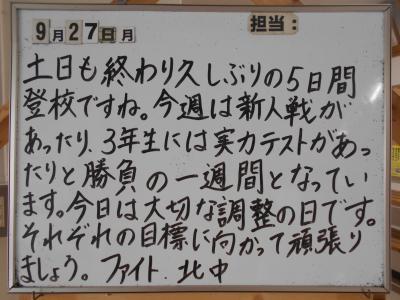 9月27日月 担当:
土日も終わり久しぶりの5日間
登校ですね。今週は新人戦が
あったり、3年生には実力テストがあっ
たりと勝負の一週間となってい
ます。今日は大切な調整の日です。
それぞれの目標に向かって頑張り
ましょう。ファイト.北中